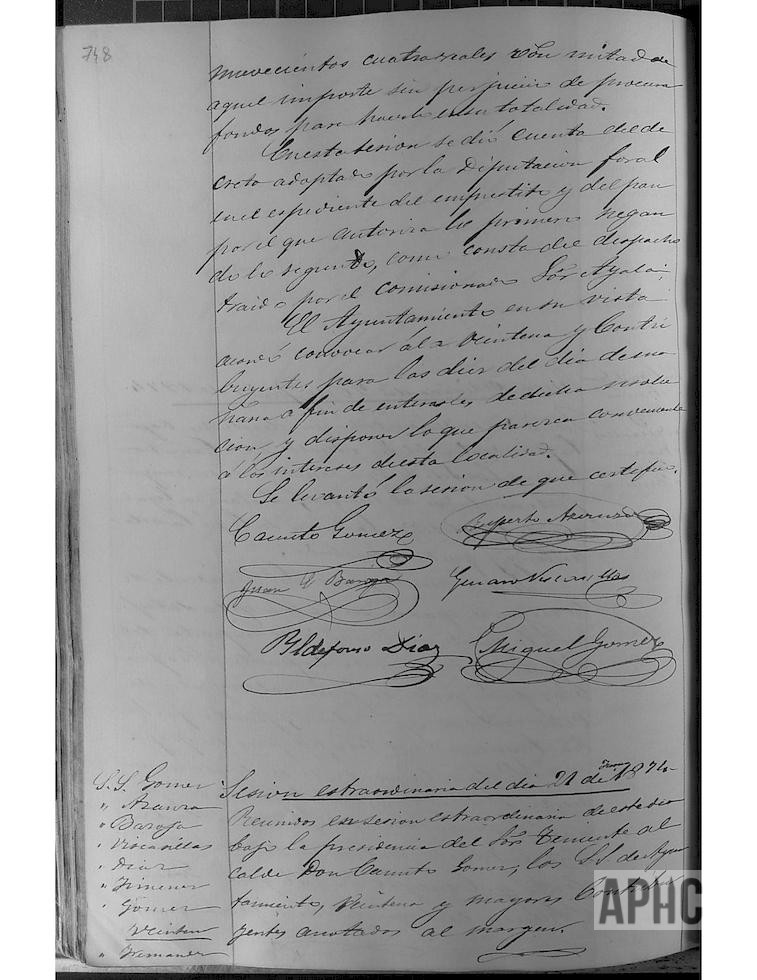 748
nuevecientos cuatro reales von mitad de
aquel importe sin perjuicio de procurar
fondos para hacerlo en su totalidad.
En esta sesion se dió cuenta del de
creto adoptado por la Diputacion foral
en el espediente del emprestito y del pan
por el que autoriza lo primero negan
do lo segundo, como consta del despacho
traido por el comisionado Sör Ayala.
El Ayuntamiento en su vista
acordó convocar á la Veintena y Contri
buyentes para las diez del dia de ma
ñana a fin de enterarles de dicha resolu
cion y disponer lo que parezca conveniente
á los intereses de esta localidad.
Se levantó la sesion de que certifico.
Canuto Gomez
Ruperto Azarnza
Juan Baroja
Genaro Viscasillas
Yldefonso Diaz
Miguel Gomez
S.S. Gomez
" Azanza
" Baroja
" Viscasillas
" Diaz
" Jimenez
" Gomez
Veinten
" Fernandez
Sesion extraordinaria del dia 21 de Enero 1874
Reunidos en sesion extraordinaria de este dia
bajo la presidencia del Sör Teniente al
calde Don Canuto Gomez, los S.S. de Ayun
tamiento, Veintena y mayores Contribu
yentes anotados al margen.
APHC